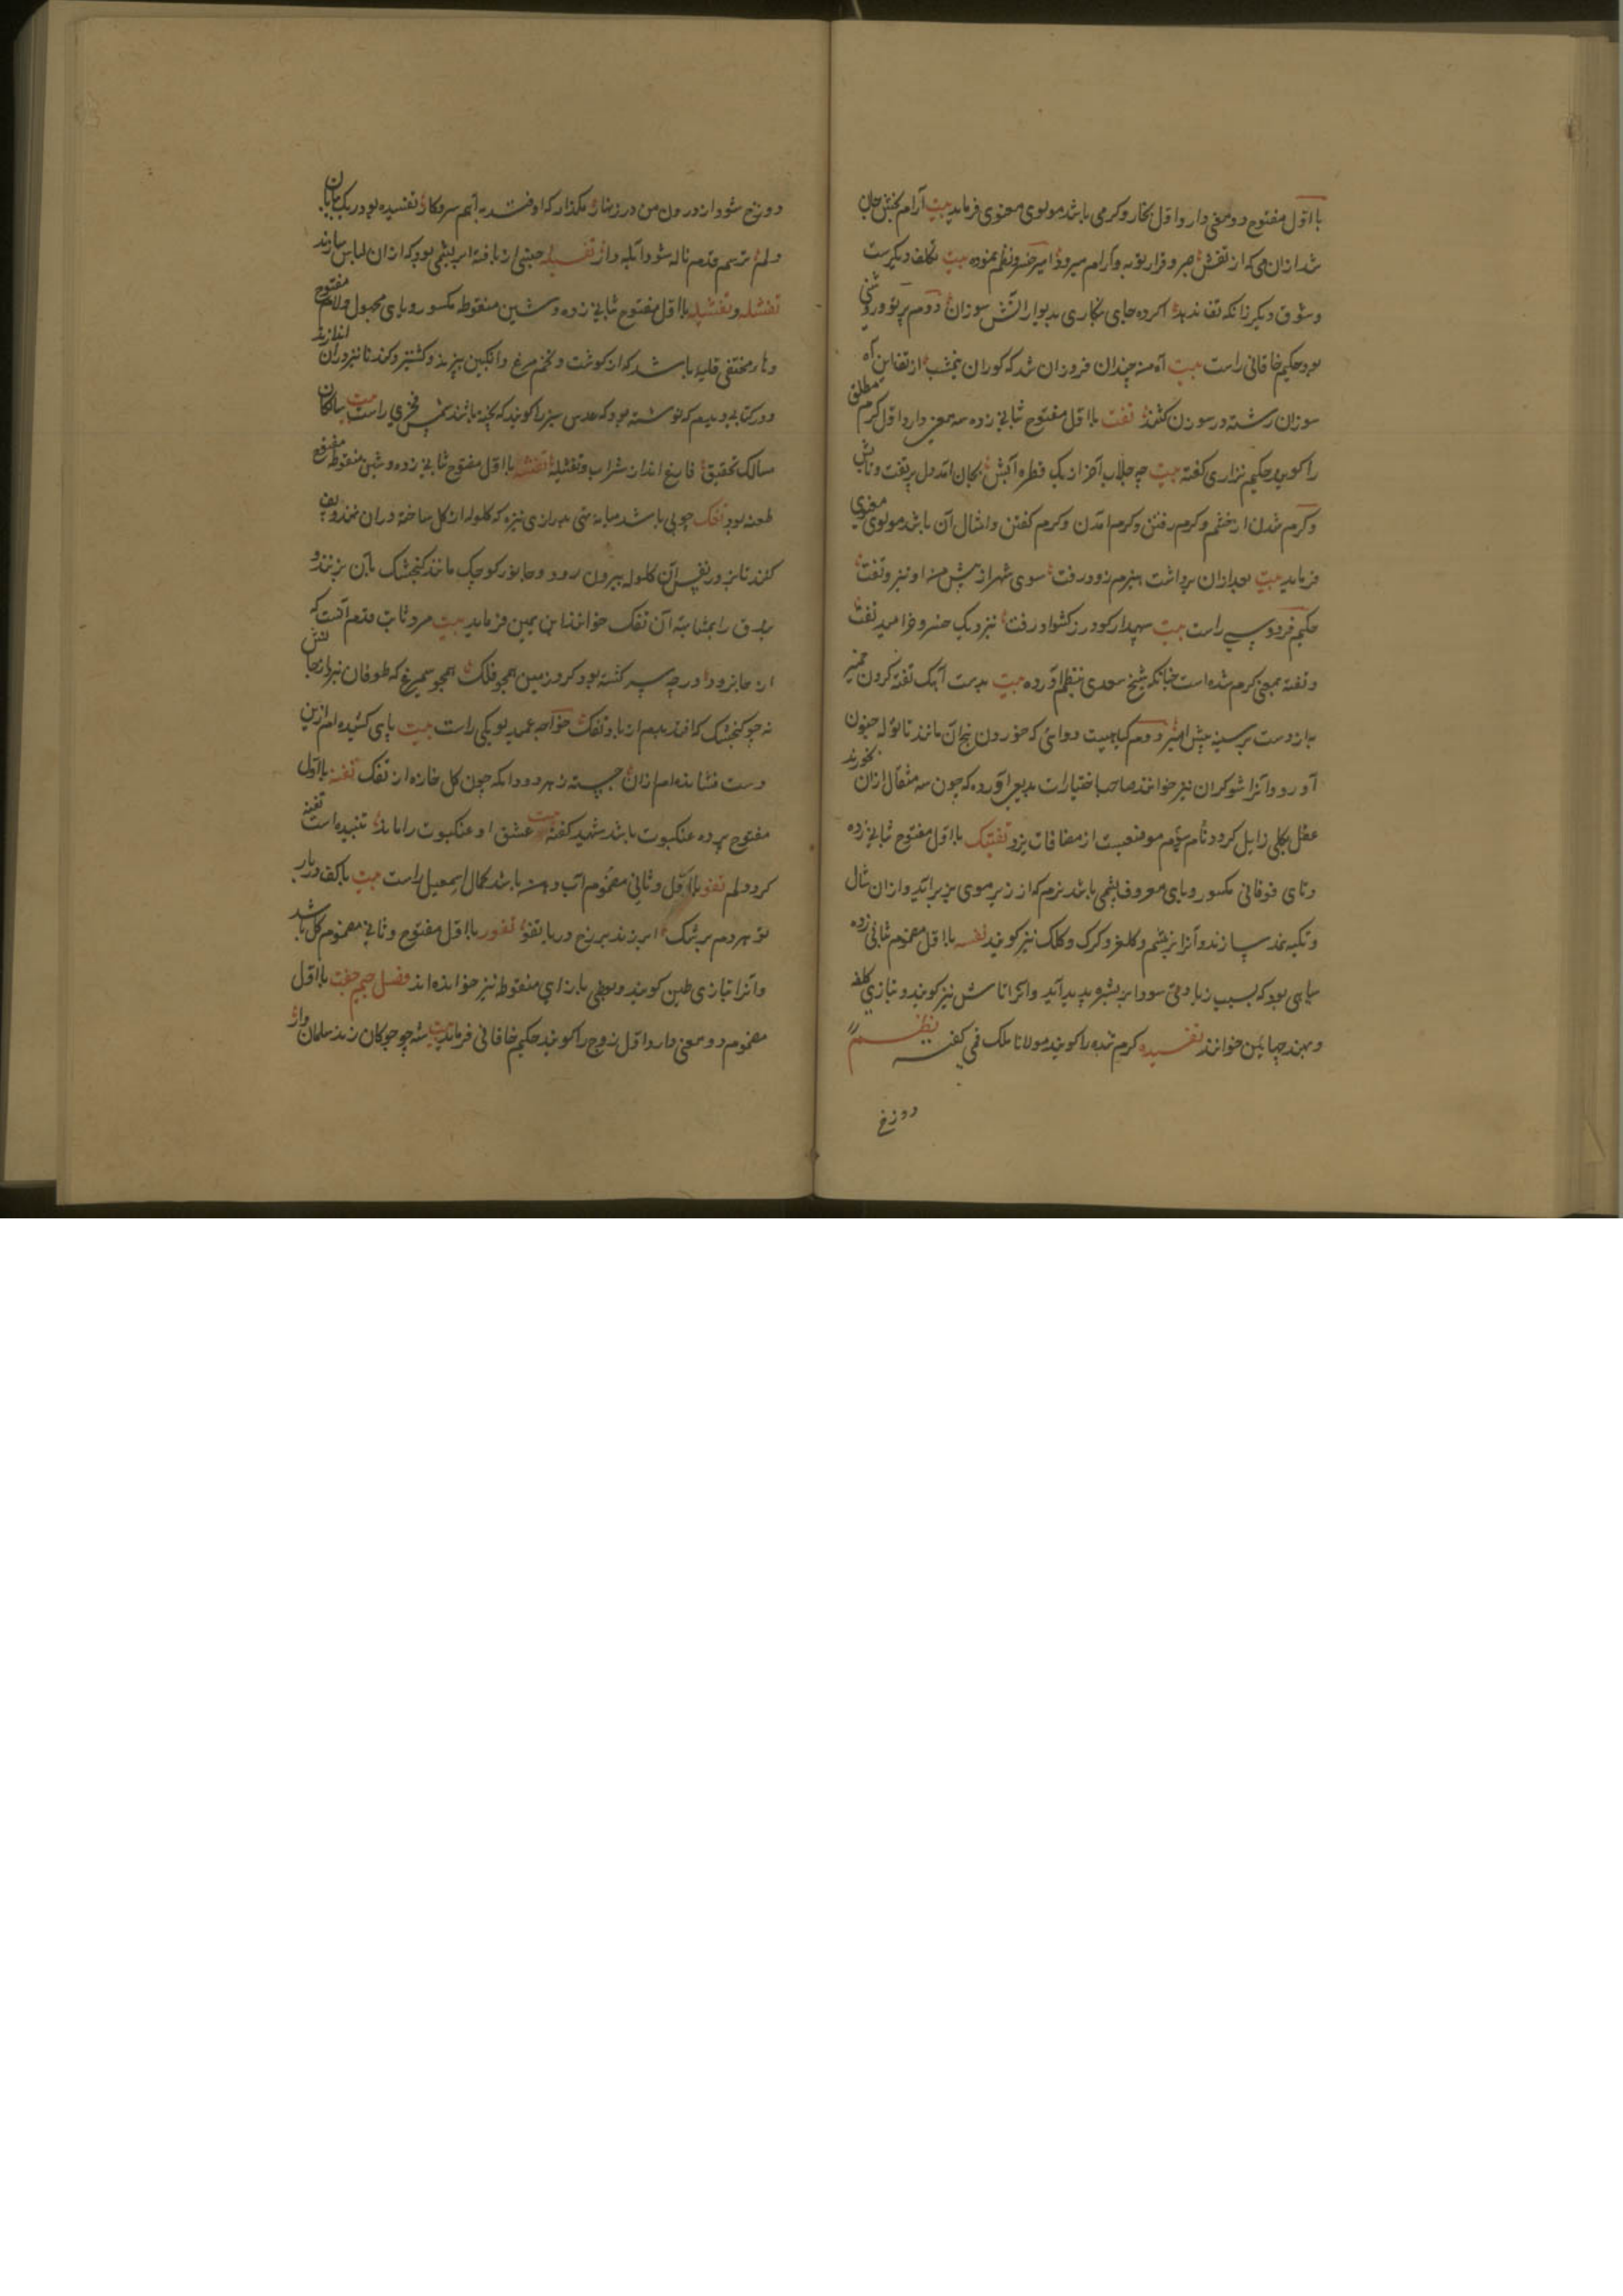 با اول مفتوح دو معنی دارد اول بخار و گرمی باشد مولوی معنوی فرماید بیت آرام بخش جان
شد ازان می که از تفش صبر و قرار توبه و آرام میرود امیر خسرو نظم نموده بیت تکلف دیگرست
و شوق دیگر زانکه تف ندید اگرده جای نگاری بدیوار آتش سوزان دوم پرتو و روشنی
بود حکیم خاقانی راست بیت آه من چندان فروزان شد که کوران نیمشب از تف این آه
سوزان رشته در سوزن کشند تفت با اول مفتوح ثانی زده سه معنی دارد اول گرم مطلق
را گویند حکیم نزاری گفته بیت چه جلاب آخر از یک قطره آبش بجان آمد دل پرتفت و تابش
و گرم شدن از خشم و گرم رفتن و گرم آمدن و گرم گفتن و امثال آن باشد مولوی معنوی
فرماید بیت بعد ازان برداشت هیزم زود رفت سوی شهر از پیش من او تیز و تفت
حکیم فردوسی راست بیت سپهدار گودرز کشواد رفت بنزدیک خسرو خرامید تفت
و تفته بمعنی گرم شده است چنانکه شیخ سعدی بنظم آورده بیت بدست آهک تفته کردن خمیر
به از دست بر سینه پیش امیر دوم گیاهیست دوائی که خوردن بیخ آن مانند تاتوله جنون
آورد و آنرا شوکران نیز خوانند صاحب اختیارات بدیعی آورده که چون سه مثقال ازان بخورند
عقل بکلی زایل گردد نام سوم موضعیست از مضافات یزد تفتیک با اول مفتوح ثانی زده
و تای فوقانی مکسور و یای معروف پشمی باشد نرم که از زیر موی بز برآید و ازان شال
و تکیه نمد سازند و آنرا بزپشم و کلغر و کرک و کلک نیز گویند تفسه با اول مضموم ثانی زده
سیاهی بود که بسبب زیادتی سودا بر بشره پدید آید و آنرا تاش نیز گویند و بتازی کلف
و بهند چهائین خوانند تفسیده گرم شده را گویند مولانا ملک قمی گفته نظم
دوزخ
دوزخ شود از درون من درزینهار مگذار که اوفتد به آتم سروکار تفسیده بود ریگ بیابان
دلم ترسم قدم ناله شود آبله دار تفسیله جنسی از بافته ابریشمی بود که ازان لباس سازند
تفشله و تفشیله با اول مفتوح ثانی زده و شین منقوطه مکسور و یای مجهول و لام مفتوح
و هاء مختفی قلیه باشد که از گوشت و تخم مرغ و انگبین بپزند و گشنیز و گندنا نیز دران اندازند
و در کتابی دیدم که نوشته بود که عدس سبز را گویند که پخته باشند شمس فخری راست بیت سالکان
سالک تحقیق فارغ اند از شراب و تفشیله تفشه با اول مفتوح ثانی زده و شین منقوطه مفتوح
طعنه بود تفک چوبی باشد میان تهی بدرازی نیزه که گلوله از گل ساخته دران نهند و پف
کنند تا بزور نفس آن گلوله بیرون رود و جانور کوچک مانند گنجشک بآن بزنند و
بندق را بمثابه آن تفک خوانند ابن یمین فرماید بیت مرد ثابت قدم آنست که
از جا نرود ورچه سرگشته بود گرد زمین همچو فلک همچو سیمرغ که طوفان نبرد از جاش
نه چو گنجشک که افتد بدم از باد تفک خواجه عمید لویکی راست بیت پای کشیده ام ازین
دست فشانده ام ازان جسته ز هر دو دامگه چون گل خازه از تفک تفنه با اول
مفتوح پرده عنکبوت باشد شهید گفته بیت عشق او عنکبوت را ماند تنیده است تفنه
گرد دلم تفو با اول و ثانی مضموم آب دهن باشد کمال اسمعیل راست بیت با کف دربار
تو هر دم سرشک ابر زند بر رخ دریا تفو تفور با اول مفتوح و ثانی مضموم گل باشد
و آنرا بتازی طین گویند و بعضی با زای منقوطه نیز خوانده اند فصل جیم جفت با اول
مضموم دو معنی دارد اول زوج را گویند حکیم خاقانی فرماید بیت شه چو چوگان زند سلمان وار